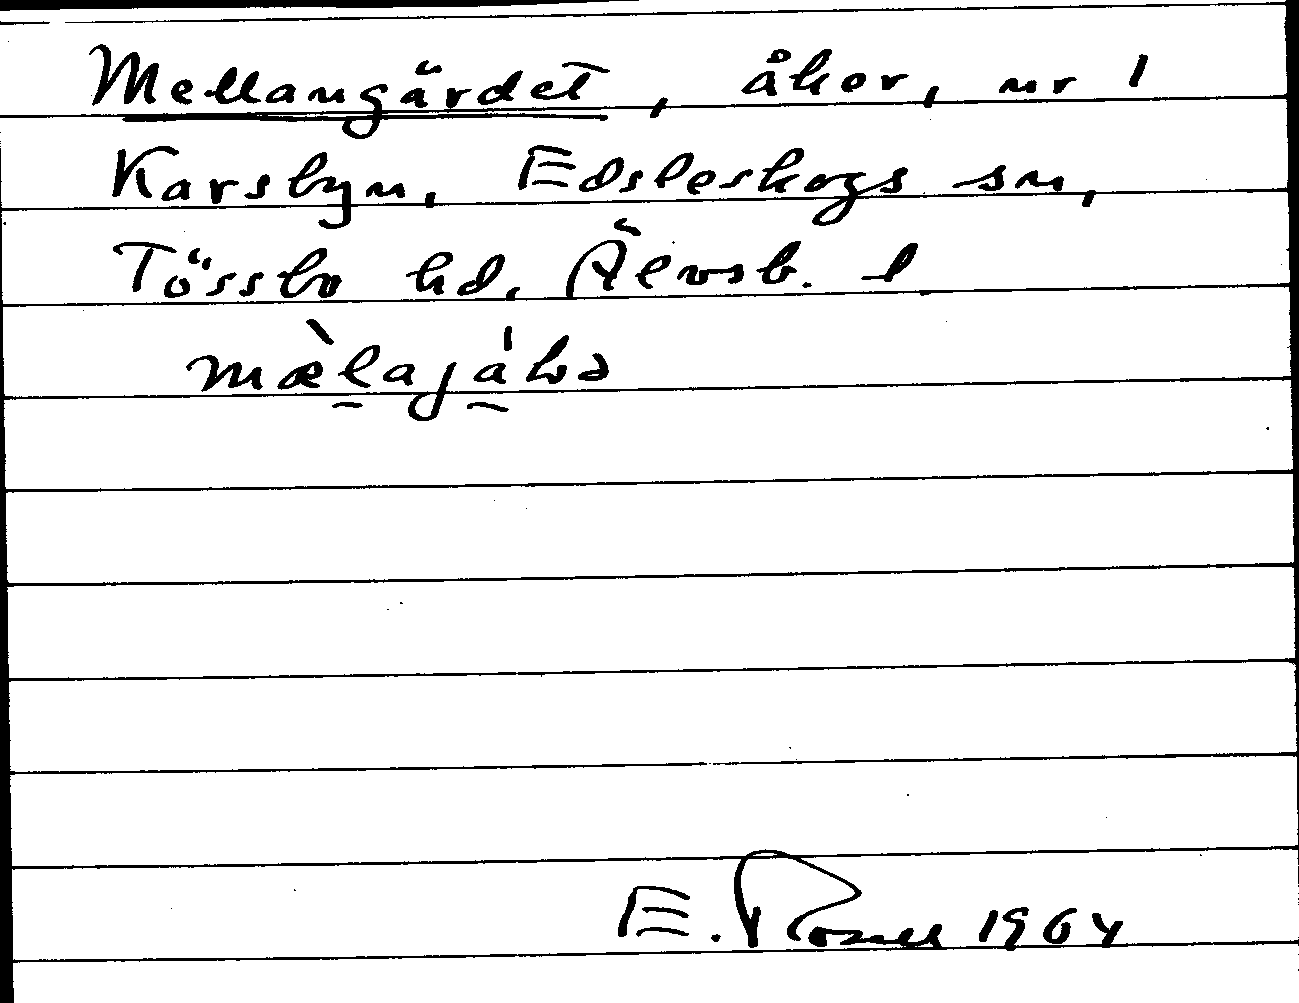 Mellangärdet, åker, nr 1
Karsbyn, Edsleskogs sn,
Tössbo hd, Älvsb. l
E. Rosell 1964